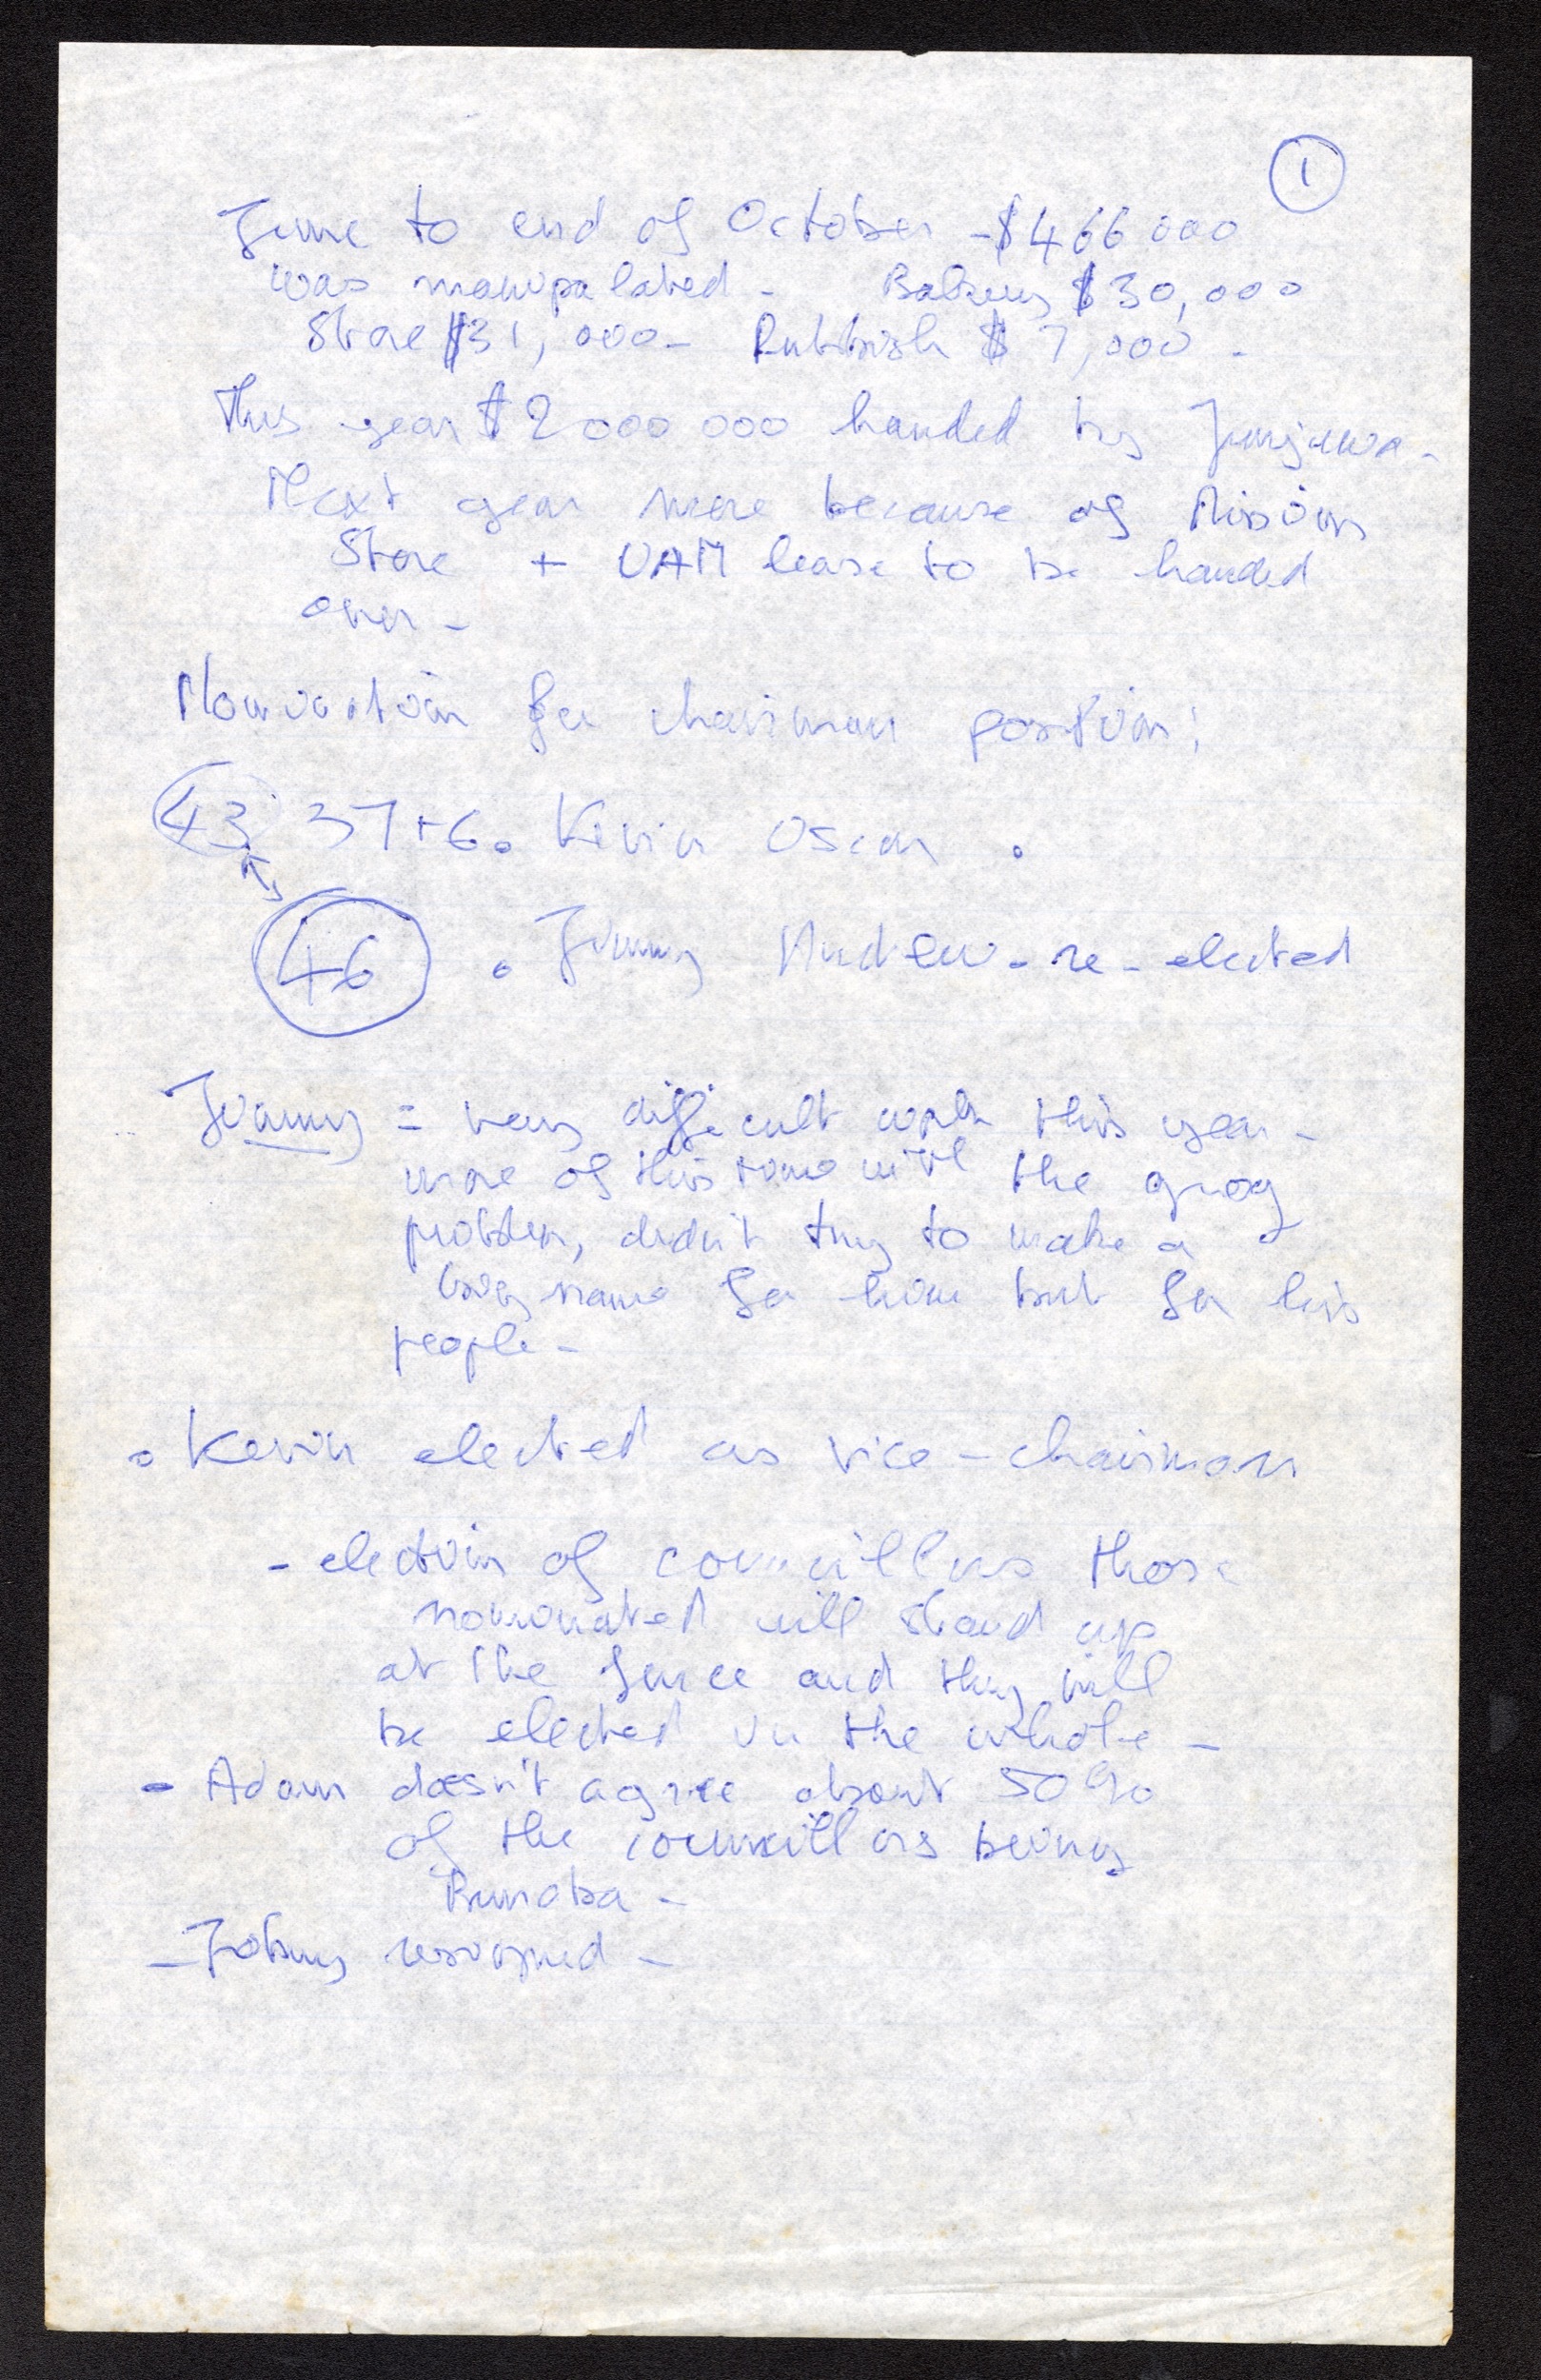 1
June to end of October - $466 000
was manipulated - Bakery $30,000
Store $31,000 - Rubbish $7,000 -
This year $2 000 000 handed by Junjuwa -
Next year more because of Mission
Store + UAM lease to be handed
over -
Nomination for chairman position:
43 37+6. Kevin Oscar .
46 . Jimmy Andrew - re-elected
Jimmy = very difficult work this year -
more of this time with the grog
problem, didn't try to make a
big name for him but for his
people -
. Kevin elected as vice-chairman
- election of councillors those
nominated will stand up
at the fence and they will
be elected on the whole -
- Adam doesn't agree about 50%
of the councillors being
Bunaba -
- resigned -